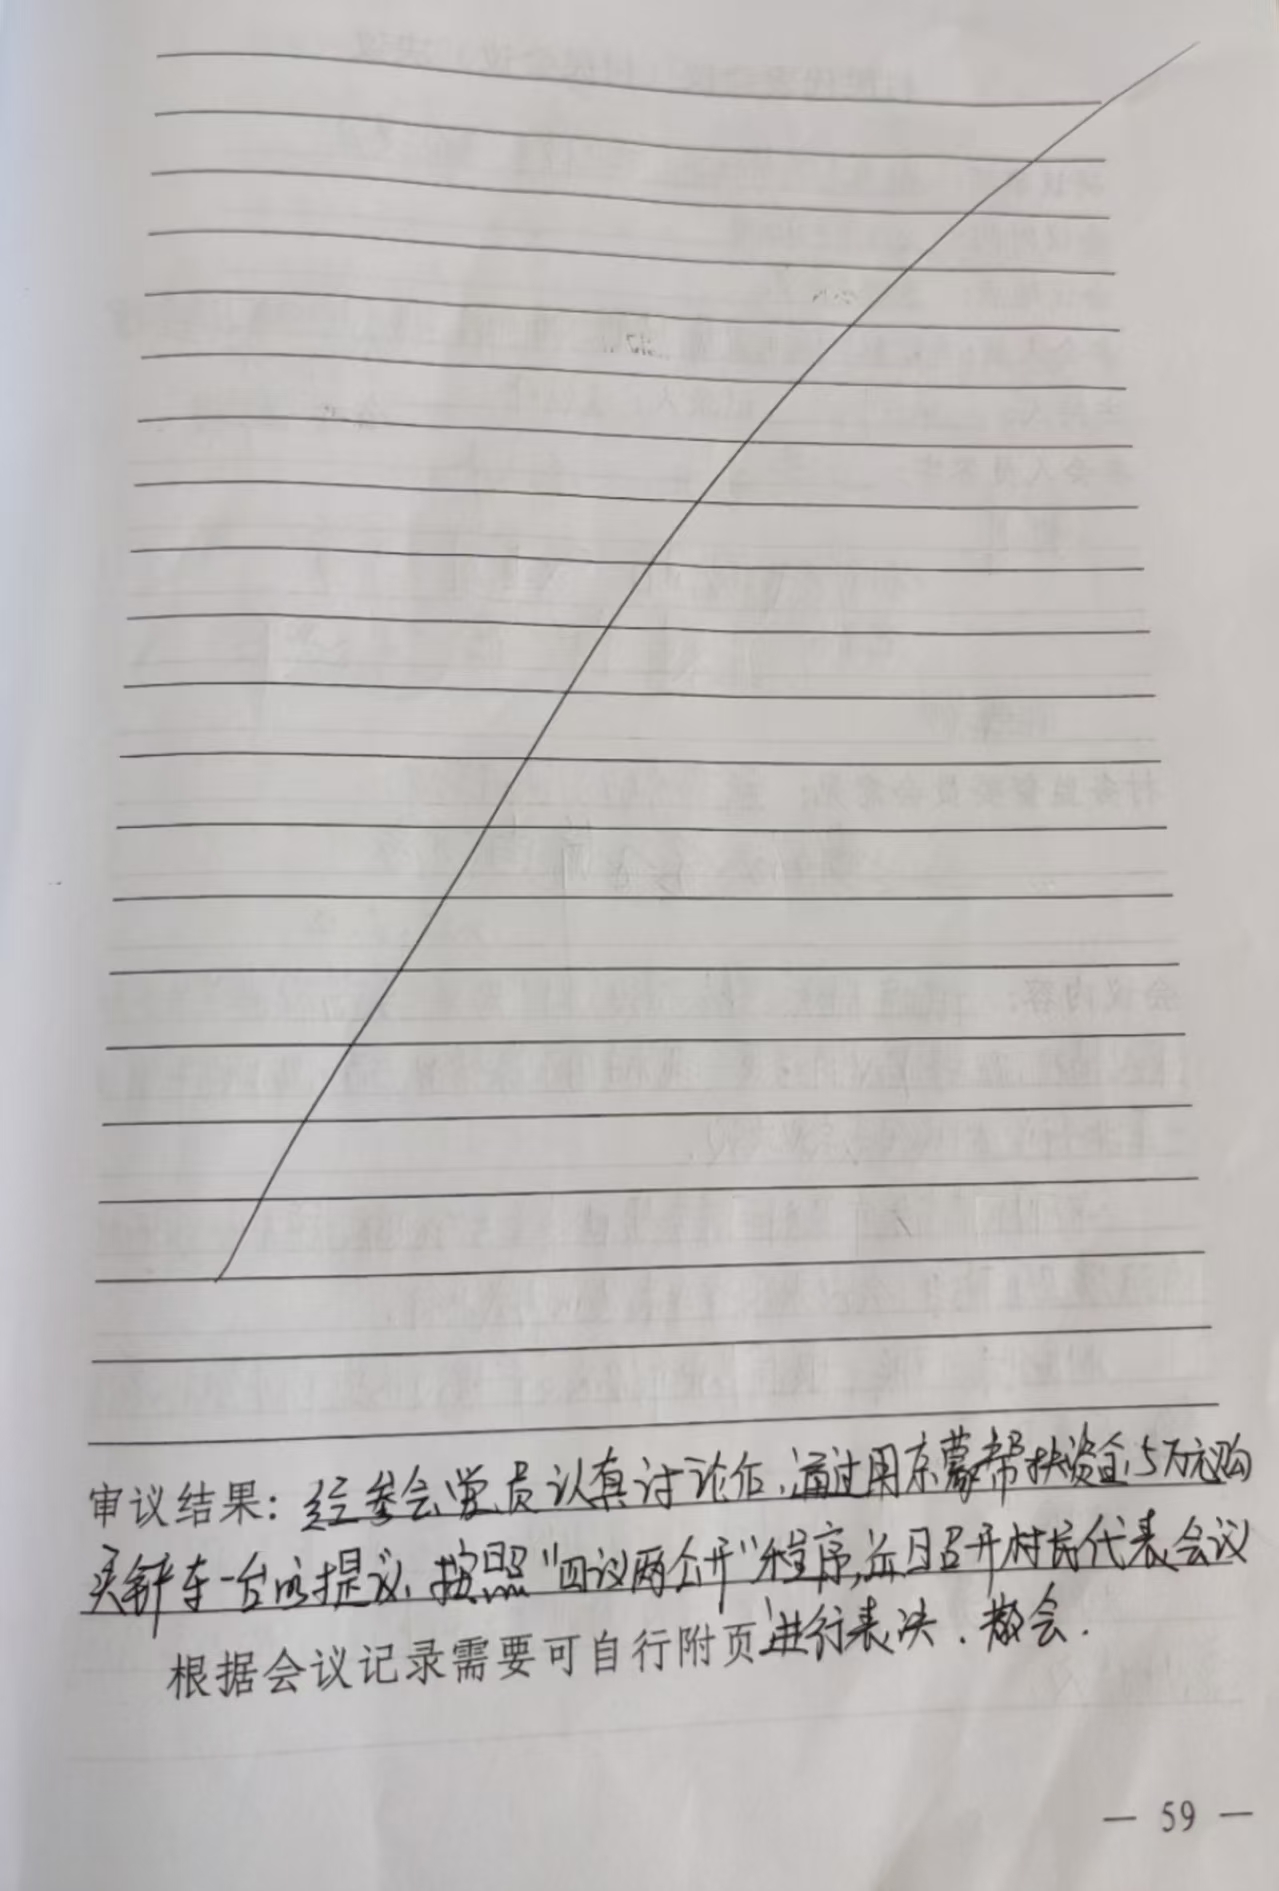 审议结果：经参会党员认真讨论后，通过用京蒙帮扶资金5万元购
买铲车一台的提议，按照“四议两公开”程序，并日召开村民代表会议
根据会议记录需要可自行附页进行表决．散会．
— 59 —